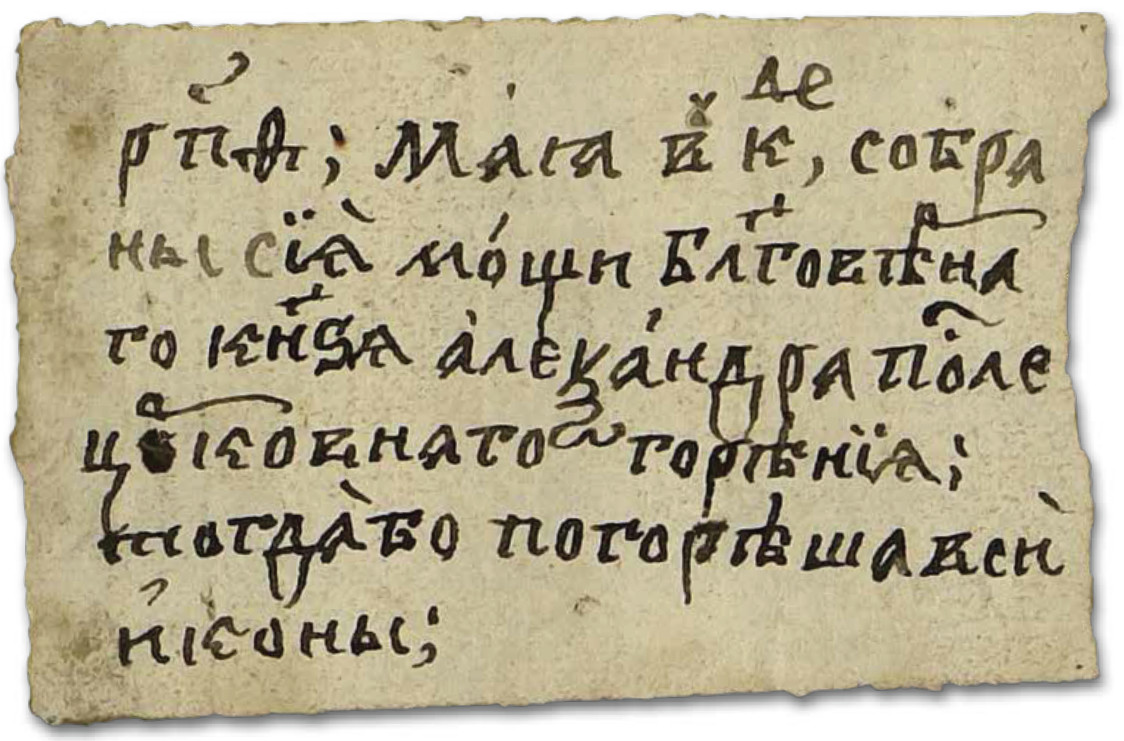 р҃пѳ; Ма́іа в̾ к, де собра
ны сїѧ̀ мо́щи бл҃говѣⷬ҇на
го кн҃ѕѧ а҆леѯа́ндра поⷭ҇ле
цр҃ковнаго ѡгорѣнїѧ;
тогда̀ бо погорѣша всѝ
и҆коны;